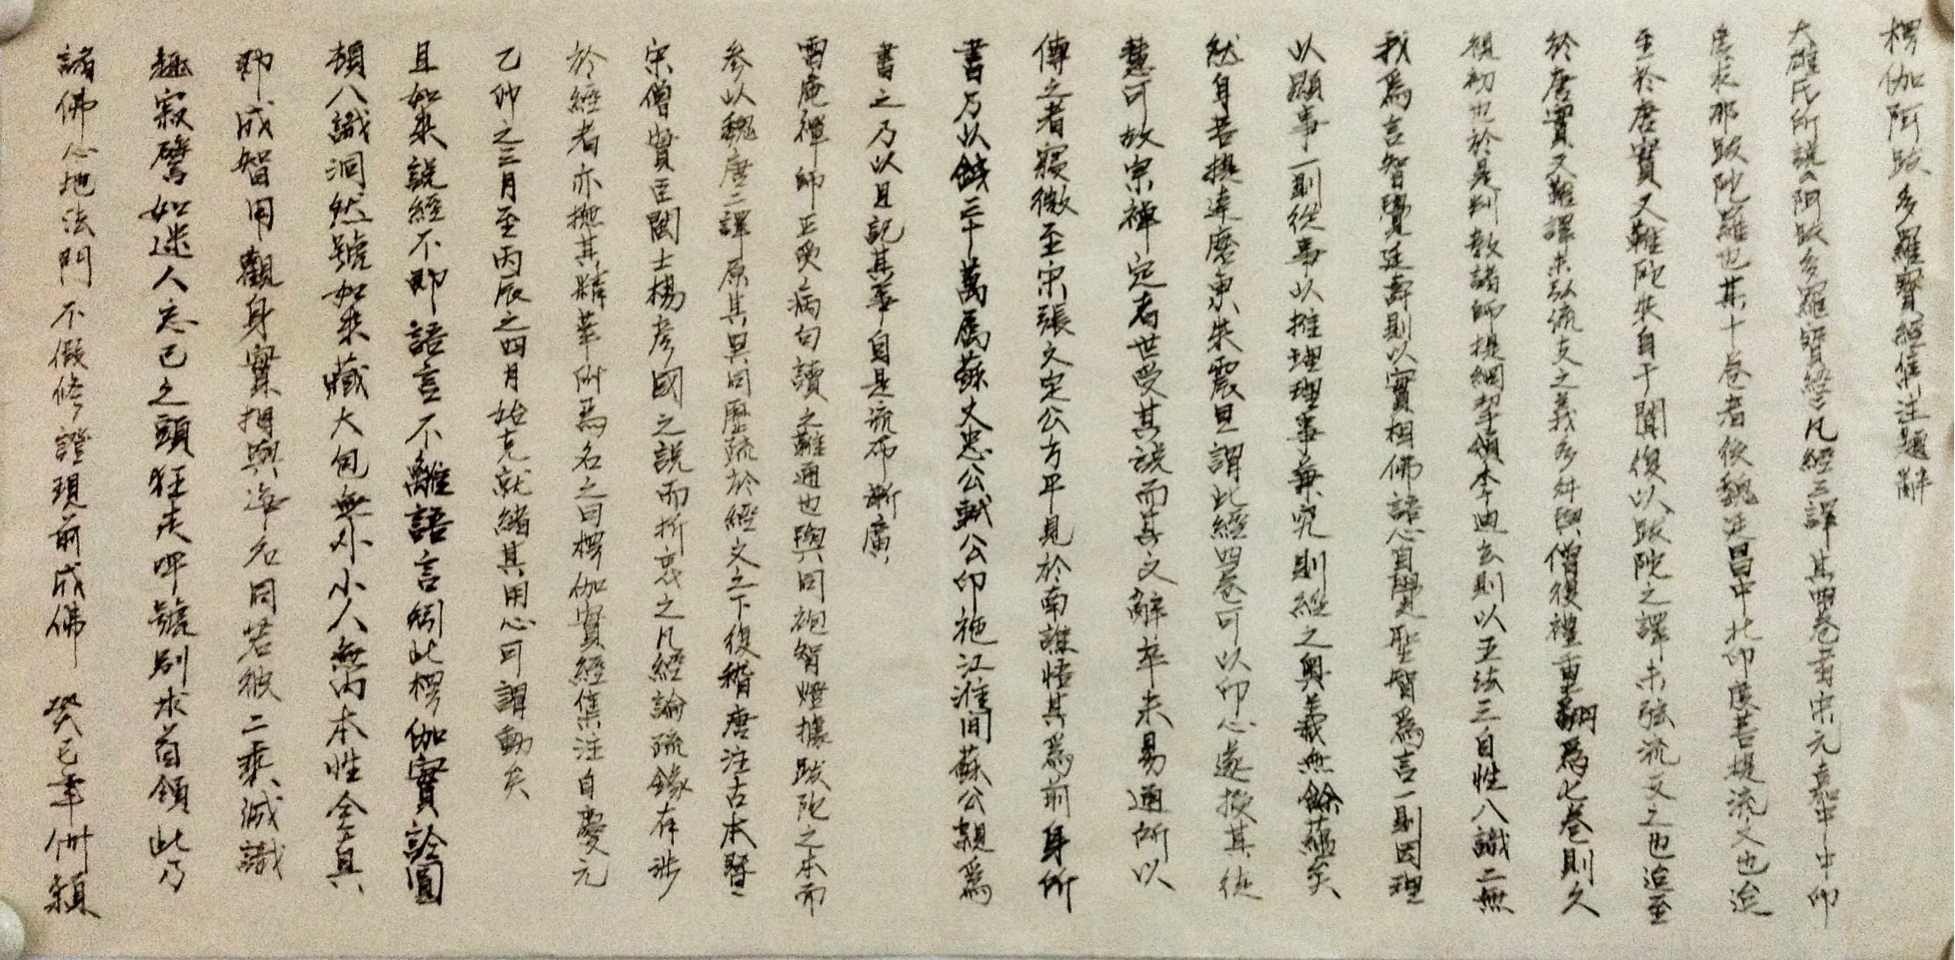 楞伽阿跋多羅寶經集注題辭
大雄氏所說阿跋多羅寶經凡經三譯其四卷者宋元嘉中中印
度求那跋陀羅也其十卷者後魏延昌中北印度菩提流支也迨
至於唐實叉難陀來自于闐復以跋陀之譯未弘流支之也迨至
於唐實叉難譯未弘流支之義多舛與僧復禮重翻為七卷則久
視初也於是判教諸師提綱挈領李迪玄則以五法三自性八識二無
我為言智覺延壽則以實相佛語心自覺聖智為言一則因理
以顯事一則從事以推理理事兼究則經之奧義無餘蘊矣
然身若提達磨東來震旦謂此經四卷可以印心遂授其徒
慧可故宗禪定者世受其說而其文辭卒未易通所以
傳之者寢微至宋張文定公方平見於南譙悟其為前身所
書乃以錢三十萬屬蘇文忠公軾公印施江淮間蘇公親為
書之乃以且記其事自是流布漸廣
雷庵禪師正受病句讀之難通也與同袍智燈據跋陀之本而
參以魏唐二譯原其異同歷疏於經文之下復稽唐注古本暨
宋僧寶臣閩士楊彥國之說而折衷之凡經論疏錄有涉
於經者亦摭其精華所為名之曰楞伽寶經集注自慶元
乙卯之三月至丙辰之四月始克就緒其用心可謂勤矣
且如來說經不即語言不離語言矧此楞伽實詮圓
頓八識洞然號如來藏大包無外小入無內本性全真
即成智用觀身實相與淨名同若彼二乘滅識
趣寂譬如迷人忘己之頭狂走呼號別求首領此乃
諸佛心地法門不假修證現前成佛 癸巳年